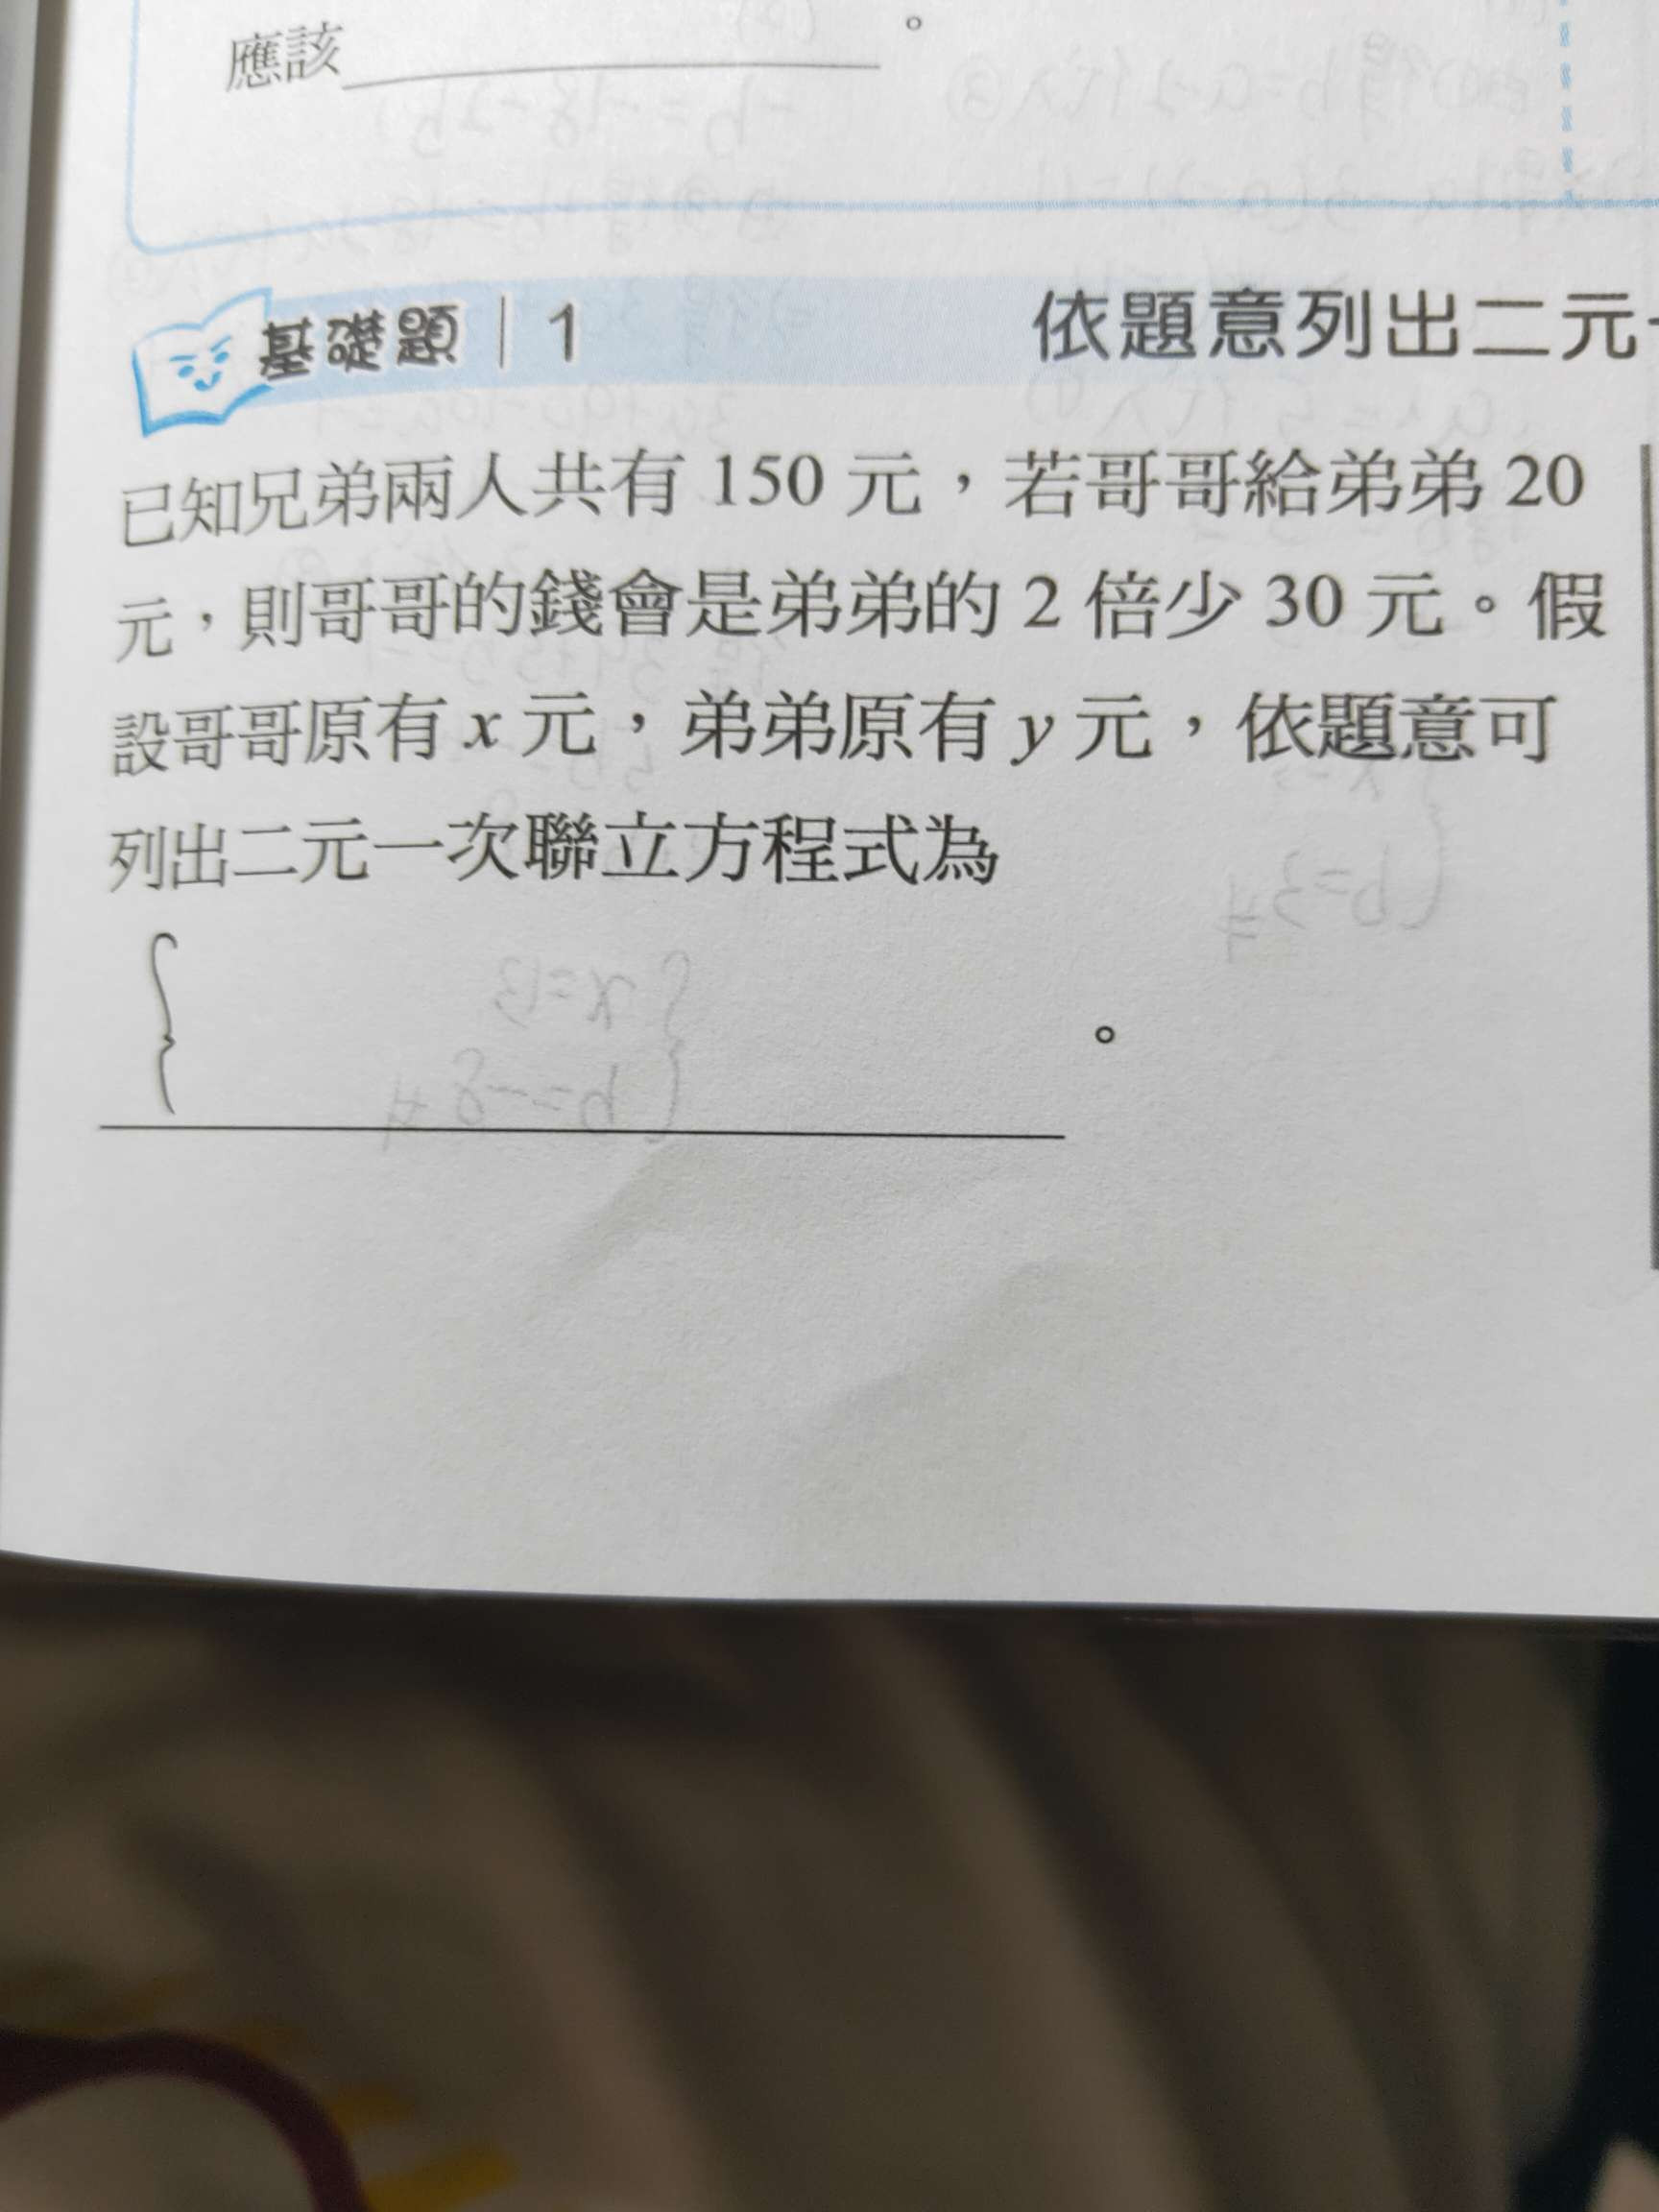 應該 。
基礎題 | 1 依題意列出二元
已知兄弟兩人共有 150 元，若哥哥給弟弟 20
元，則哥哥的錢會是弟弟的 2 倍少 30 元。假
設哥哥原有 x 元，弟弟原有 y 元，依題意可
列出二元一次聯立方程式為
{ 。